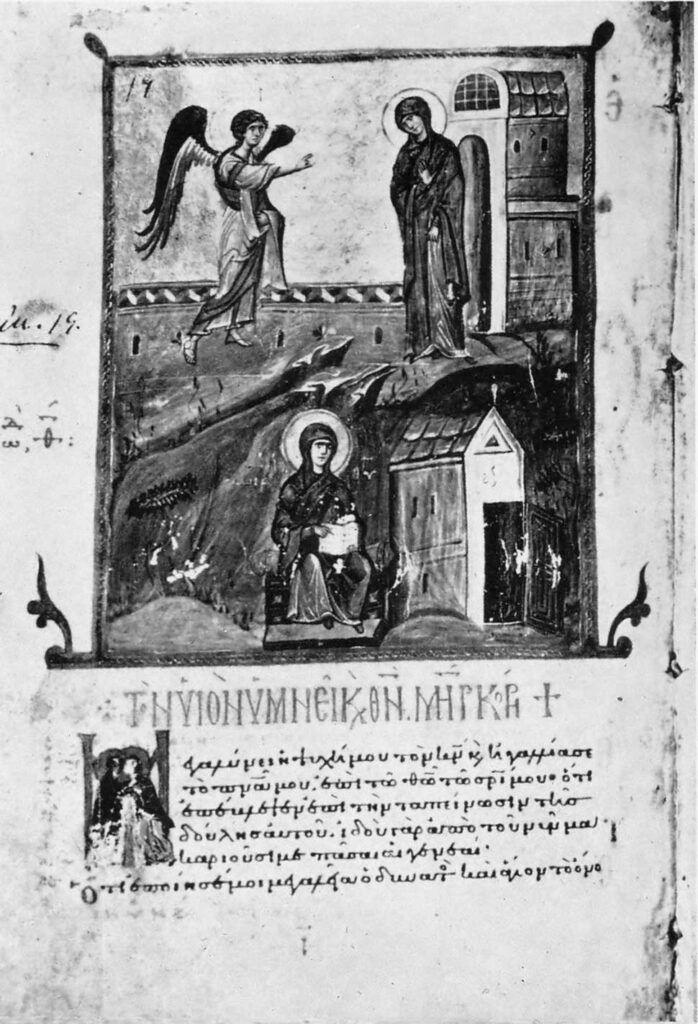 19
19.
ΤῊΝ ΥἹῸΝ ὙΜΝΕΙ͂ Κ ΘΝ̅. ΜΗ̅Ρ ΚΟΡΗ +
Μεγαλύνει ἡ ψυχή μου τὸν κ̅ν κ, ἠγαλλίασε
τὸ πν̅α μου. ἐπὶ τῶ θ̅ω τῶ σρ̅ι μου· ὅτι
ἐπέβλεψεν ἐπὶ τὴν ταπείνωσιν τῆς
δούλης αὐτοῦ. ἰδοὺ γὰρ ἀπὸ τοῦ νῦν μα
καριοῦσι με πᾶσαι αἱ γενεαί·
Ὅτι ἐποίησέ μοι μεγαλεῖα ὁ δυνατ καὶ ἅγιον τὸ ὄνο